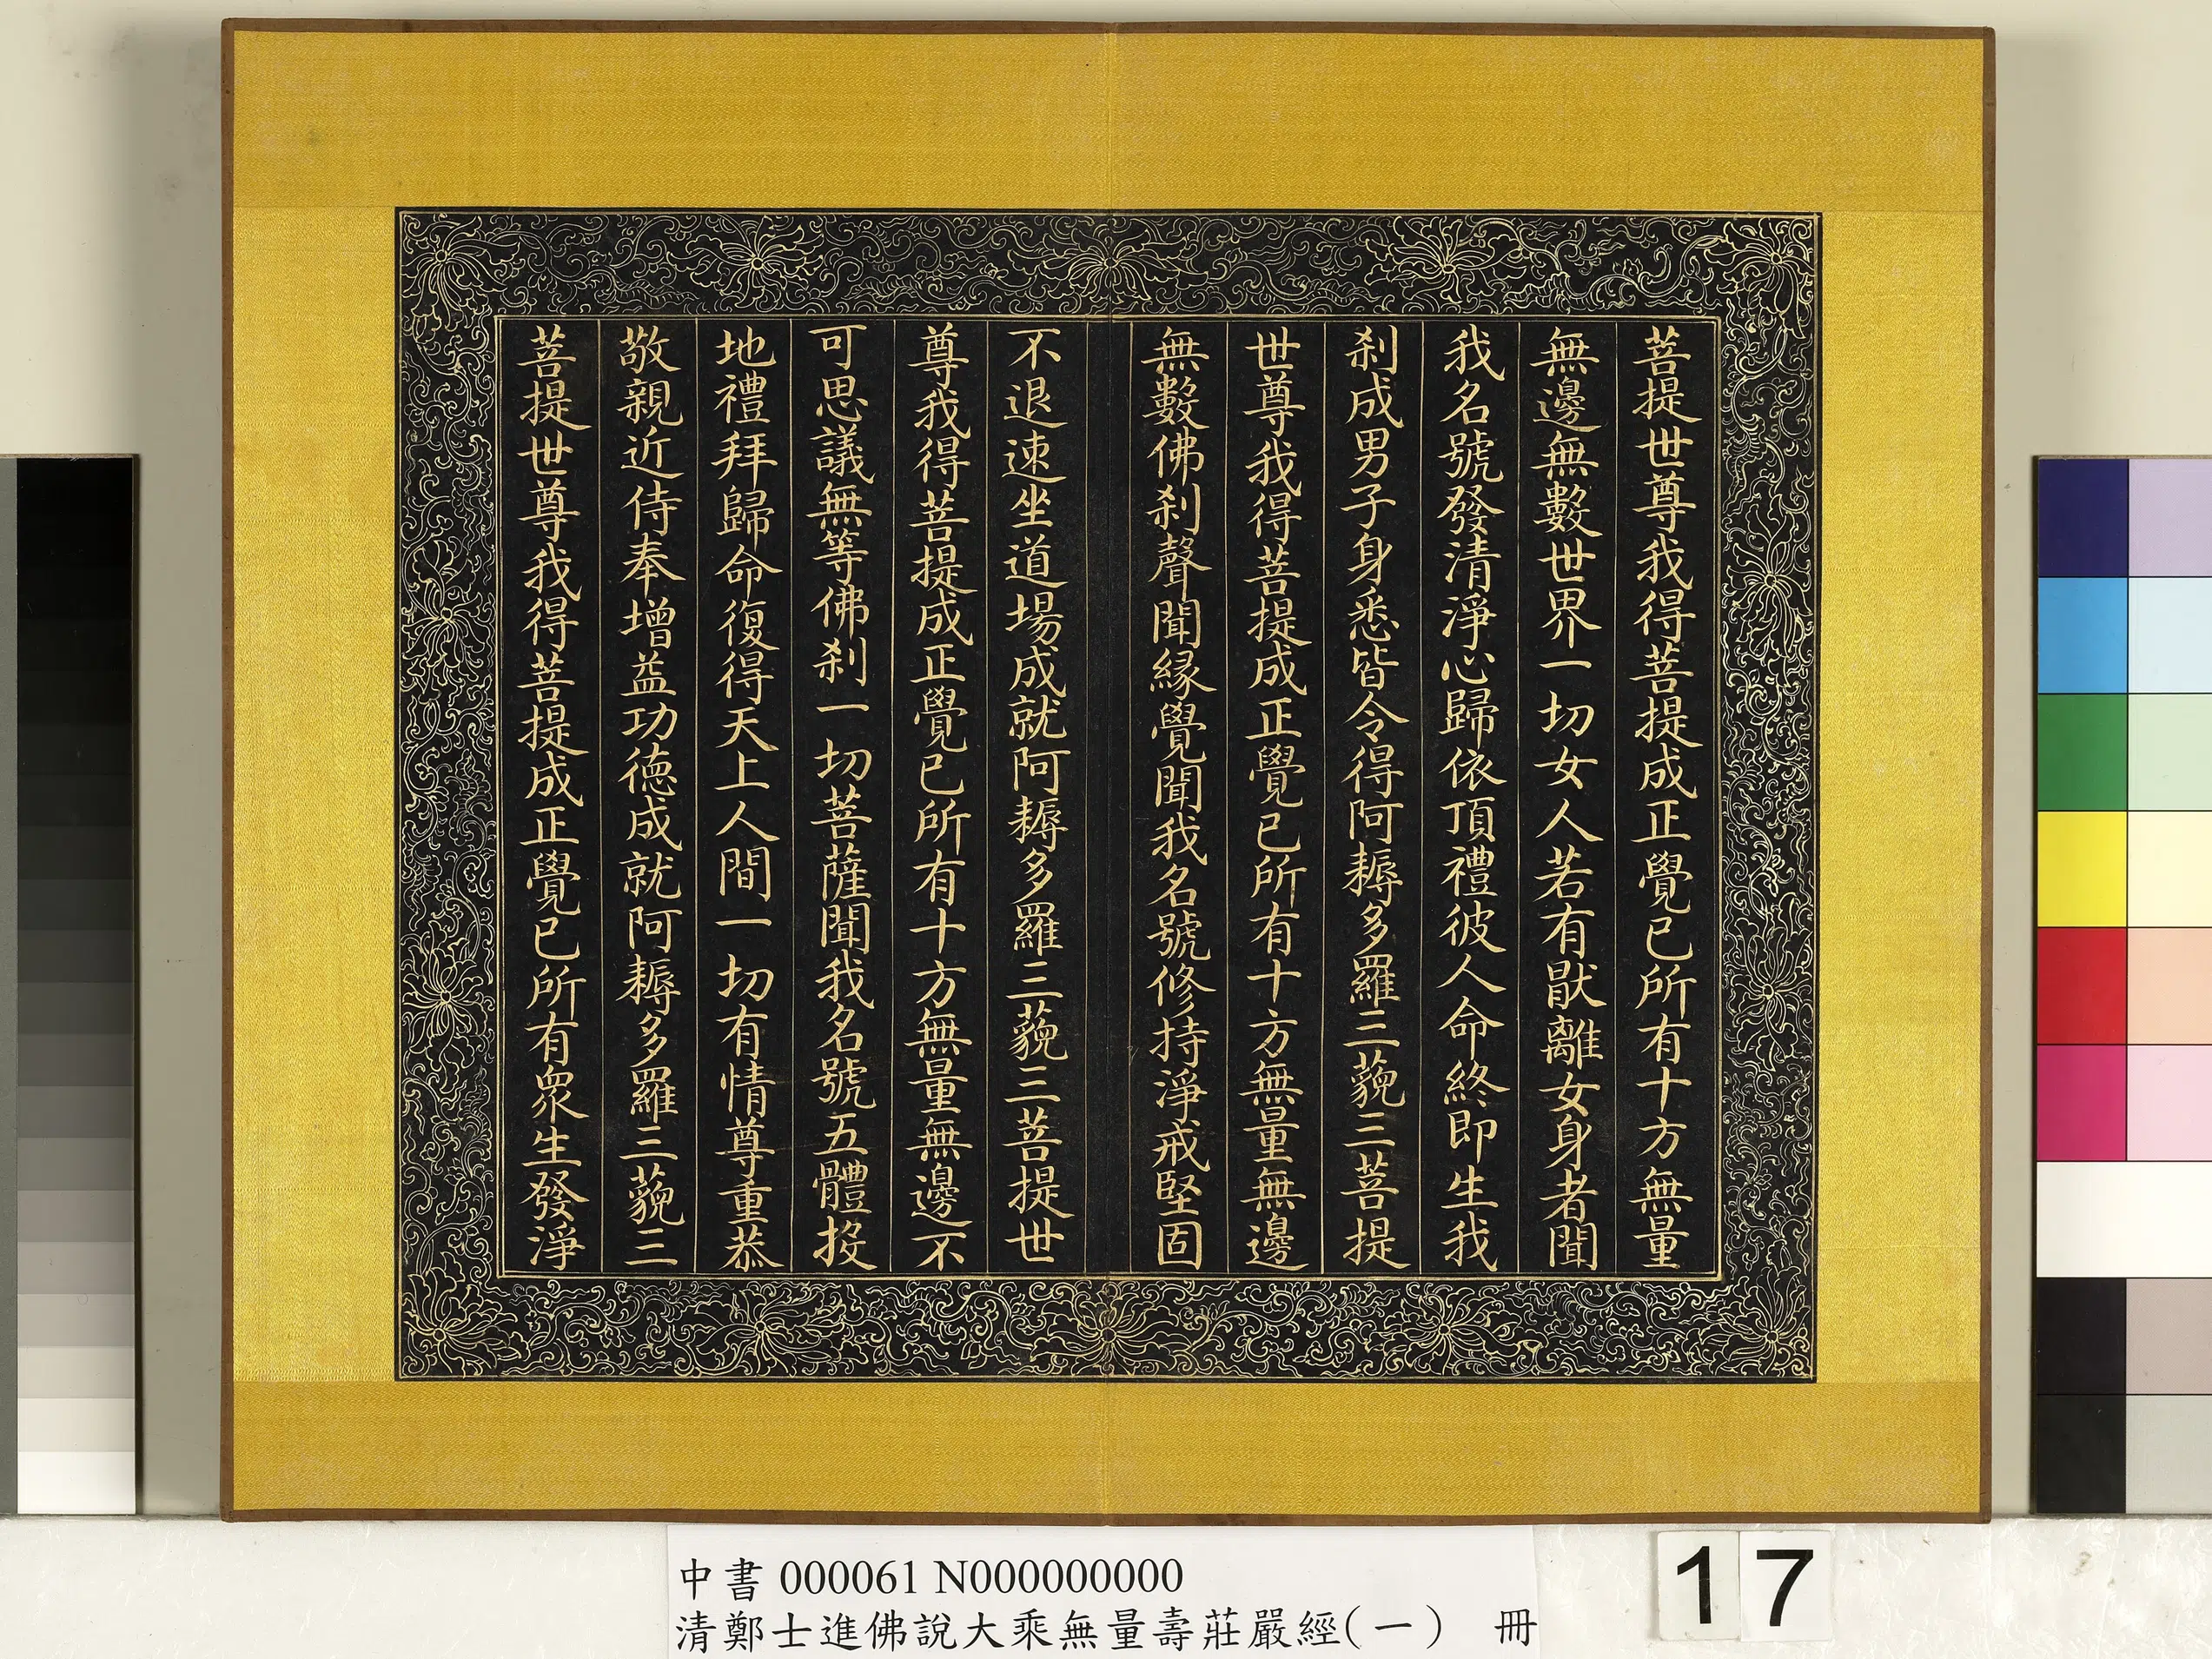 菩提世尊我得菩提成正覺已所有十方無量
無邊無數世界一切女人若有猒離女身者聞
我名號發清淨心歸依頂禮彼人命終即生我
剎成男子身悉皆令得阿耨多羅三藐三菩提
世尊我得菩提成正覺已所有十方無量無邊
無數佛剎聲聞緣覺聞我名號修持淨戒堅固
不退速坐道場成就阿耨多羅三藐三菩提世
尊我得菩提成正覺已所有十方無量無邊不
可思議無等佛剎一切菩薩聞我名號五體投
地禮拜歸命復得天上人間一切有情尊重恭
敬親近侍奉增益功德成就阿耨多羅三藐三
菩提世尊我得菩提成正覺已所有眾生發淨
中書 000061 N000000000
清鄭士進佛說大乘無量壽莊嚴經(一) 冊
17